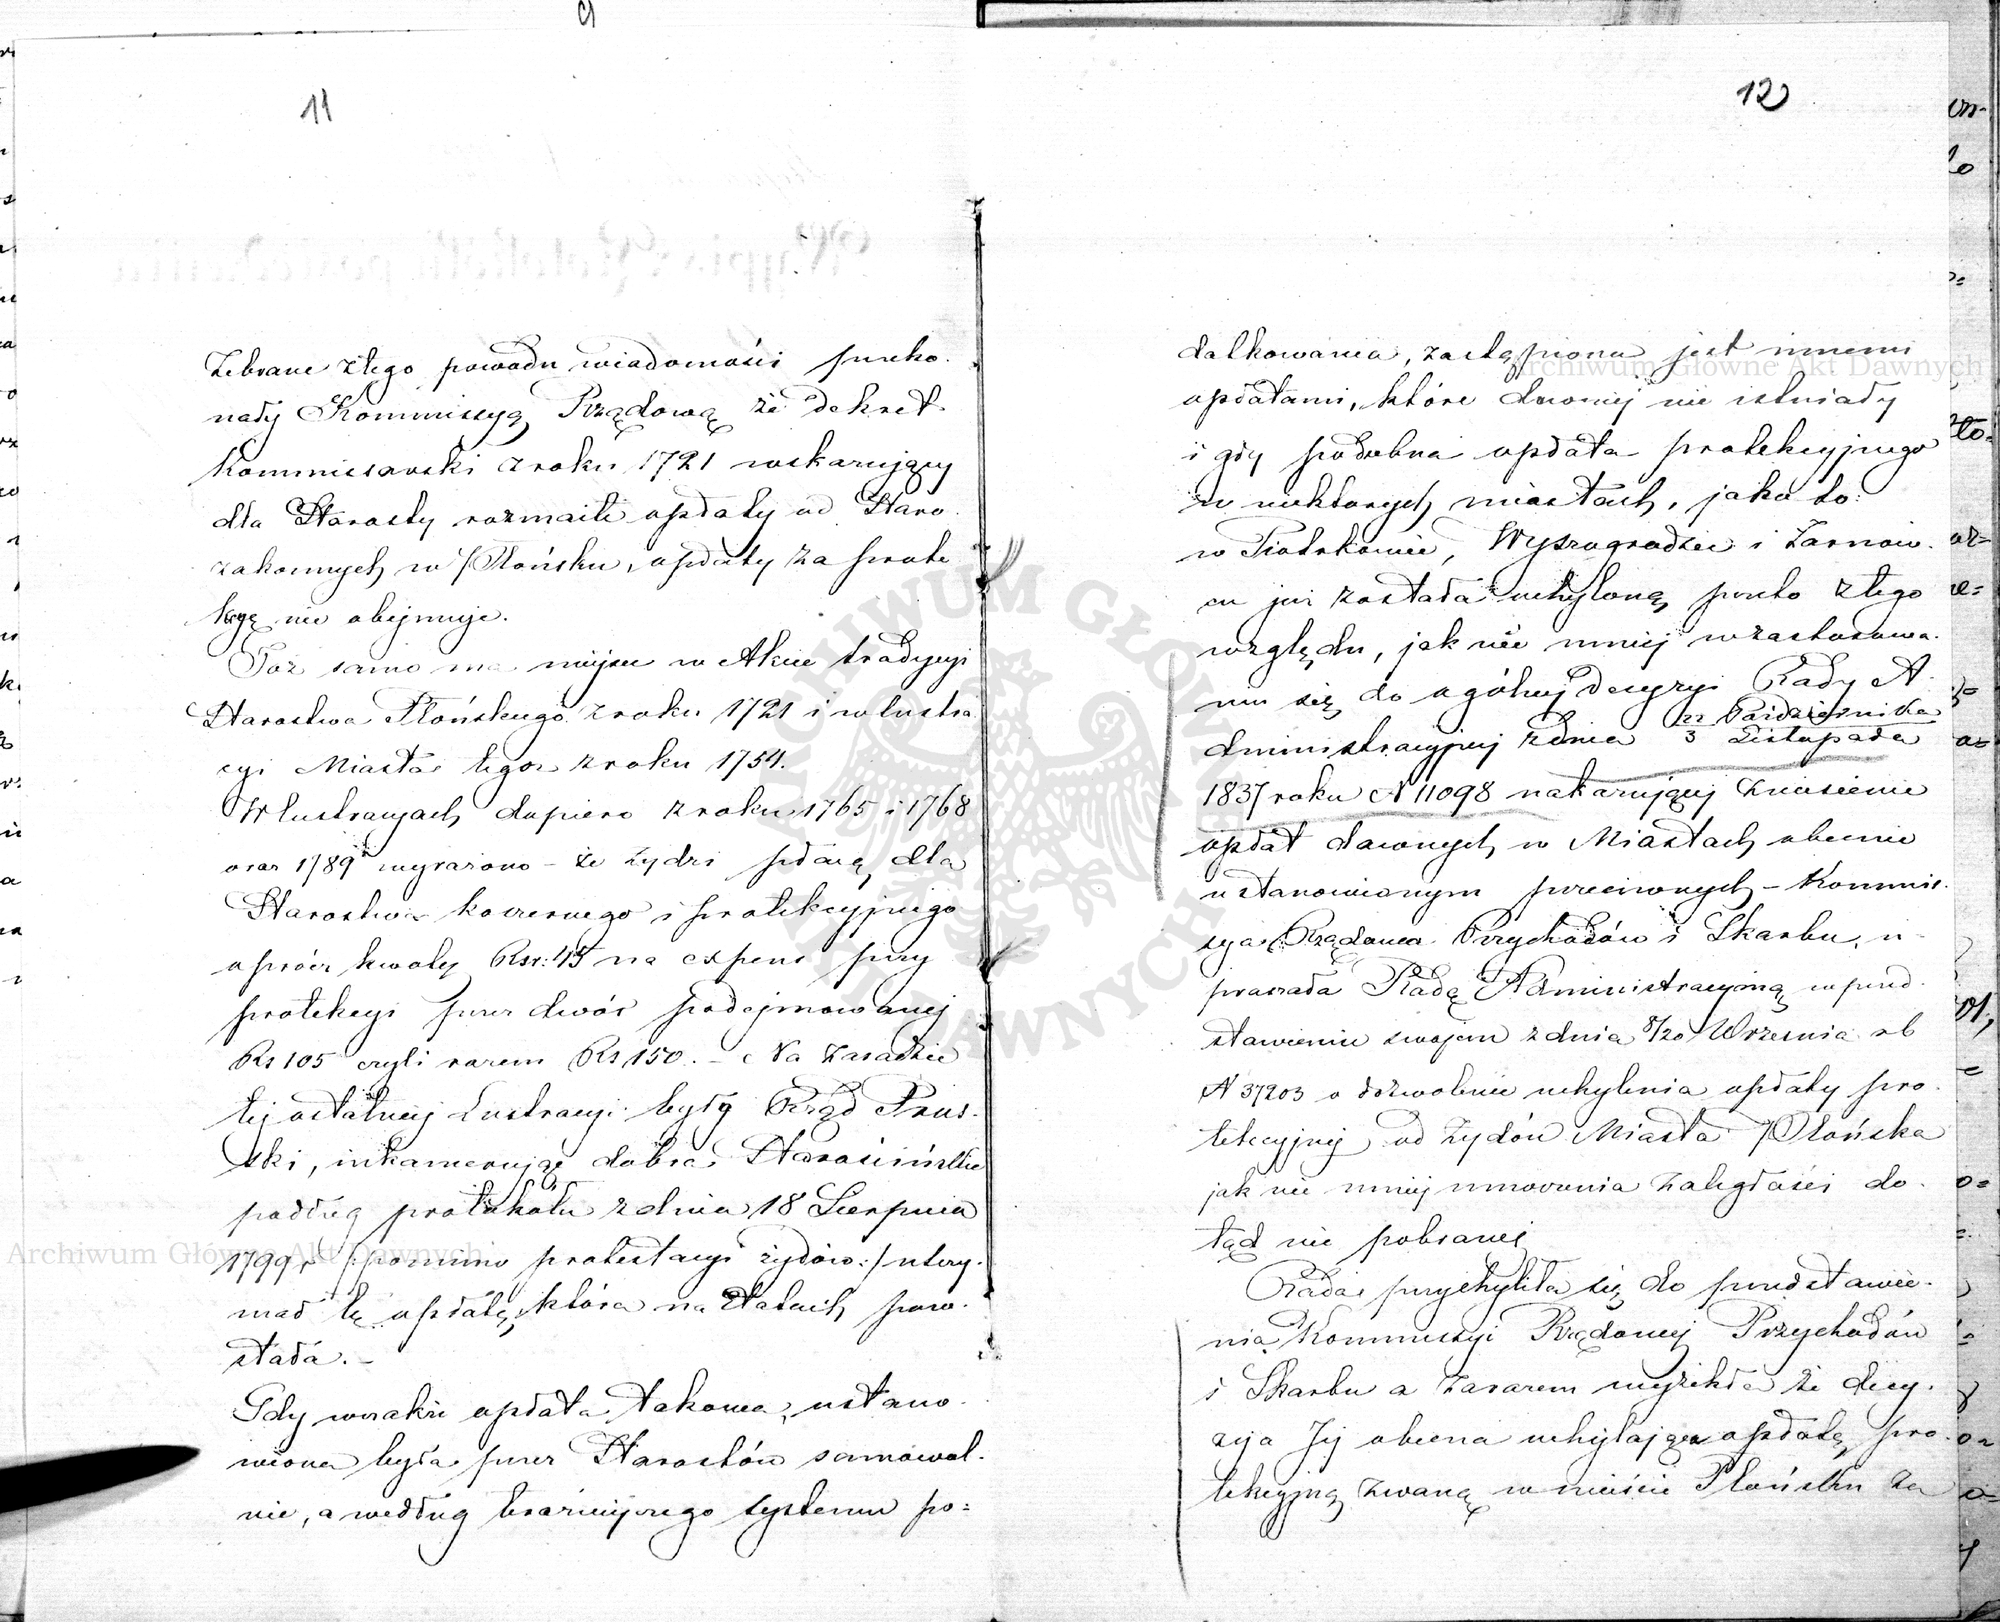 11
Zebrane z tego powodu wiadomości przeko-
nały Kommissyą Rządową że dekret
Kommissarski z roku 1721 wskazujący
dla Starosty rozmaite opłaty od Staro-
zakonnych w Płońsku, opłaty za prote
kcyę nie obejmuje.
Toż samo ma miejsce w Akcie tradycyi
Starostwa Płońskiego z roku 1721 i w lustra
cyi Miasta tegoż z roku 1754.
W lustracyach dopiero z roku 1765 i 1768
oraz 1789 wyrażono – że żydzi płacą dla
Starostwa kozernego i protekcyjnego
oprócz kwoty Rsr: 45 na expens przy
protekcyi przez dwór podejmowanej
Rs 105 czyli razem Rs 150. – Na zasadzie
tej ostatniej Lustracyi były Rząd Prus-
ski, inkamerując dobra Starościńskie
podług protokółu z dnia 18 Sierpnia
1799 r /:pomimo protestacyi żydów:/ utrzy-
mał tę opłatę, która na Etatach pozo-
stała. –
Gdy wszakże opłata takowa, ustano-
wiona była przez Starostów samowol-
nie, a według teraźniejszego systemu po=
12
datkowania, zastąpiona jest innemi
opłatami, które dawniej nie istniały
i gdy podobna opłata protekcyjnego
w niektórych miastach, jako to:
w Piotrkowie, Wyszogrodzie i Żarnow-
cu już została uchyloną, przeto z tego
względu, jak nie mniej w zastosowa-
niu się do ogólnej decyzyi Rady A-
22 Października
dministracyjnej z dnia 3 Listopada
1837 roku N 11098 nakazującej zniesienie
opłat dawnych w Miastach obecnie
ustanowionym przeciwnych – Kommis-
sya Rządowa Przychodów i Skarbu, u-
praszała Radę Administracyjną w przed-
stawieniu swojem z dnia 8/20 Września r b
N 37203 o dozwolenie uchylenia opłaty pro-
tekcyjnej od żydów Miasta Płońska
jak nie mniej umorzenia zaległości do-
tąd nie pobranej
Rada przychyliła się do przedstawie-
nia Kommissyi Rządowej Przychodów
i Skarbu a zarazem wyrzekła że decy-
zya Jej obecna uchylająca opłatę pro-
tekcyjną zwaną w mieście Płońsku za
Archiwum Główne Akt Dawnych
Archiwum Główne Akt Dawnych
ARCHIWUM GŁÓWNE AKT DAWNYCH